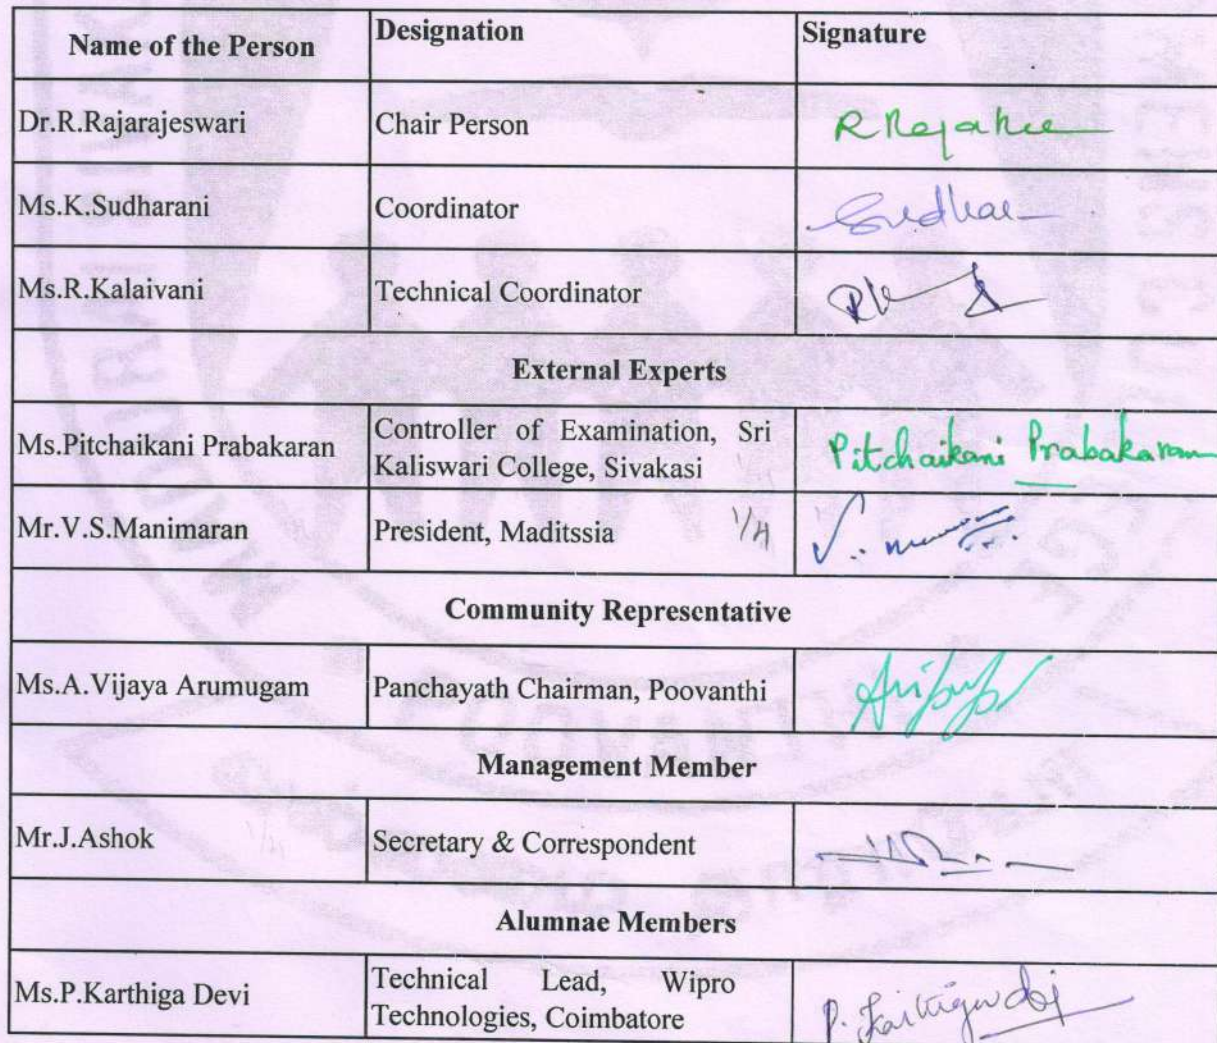 Name of the Person Designation Signature
Dr.R.Rajarajeswari Chair Person
Ms.K.Sudharani Coordinator
Ms.R.Kalaivani Technical Coordinator
External Experts
Ms.Pitchaikani Prabakaran Controller of Examination, Sri Pitchaikani Prabakaran
Kaliswari College, Sivakasi
Mr.V.S.Manimaran President, Maditssia
Community Representative
Ms.A.Vijaya Arumugam Panchayath Chairman, Poovanthi
Management Member
Mr.J.Ashok Secretary & Correspondent
Alumnae Members
Ms.P.Karthiga Devi Technical Lead, Wipro
Technologies, Coimbatore